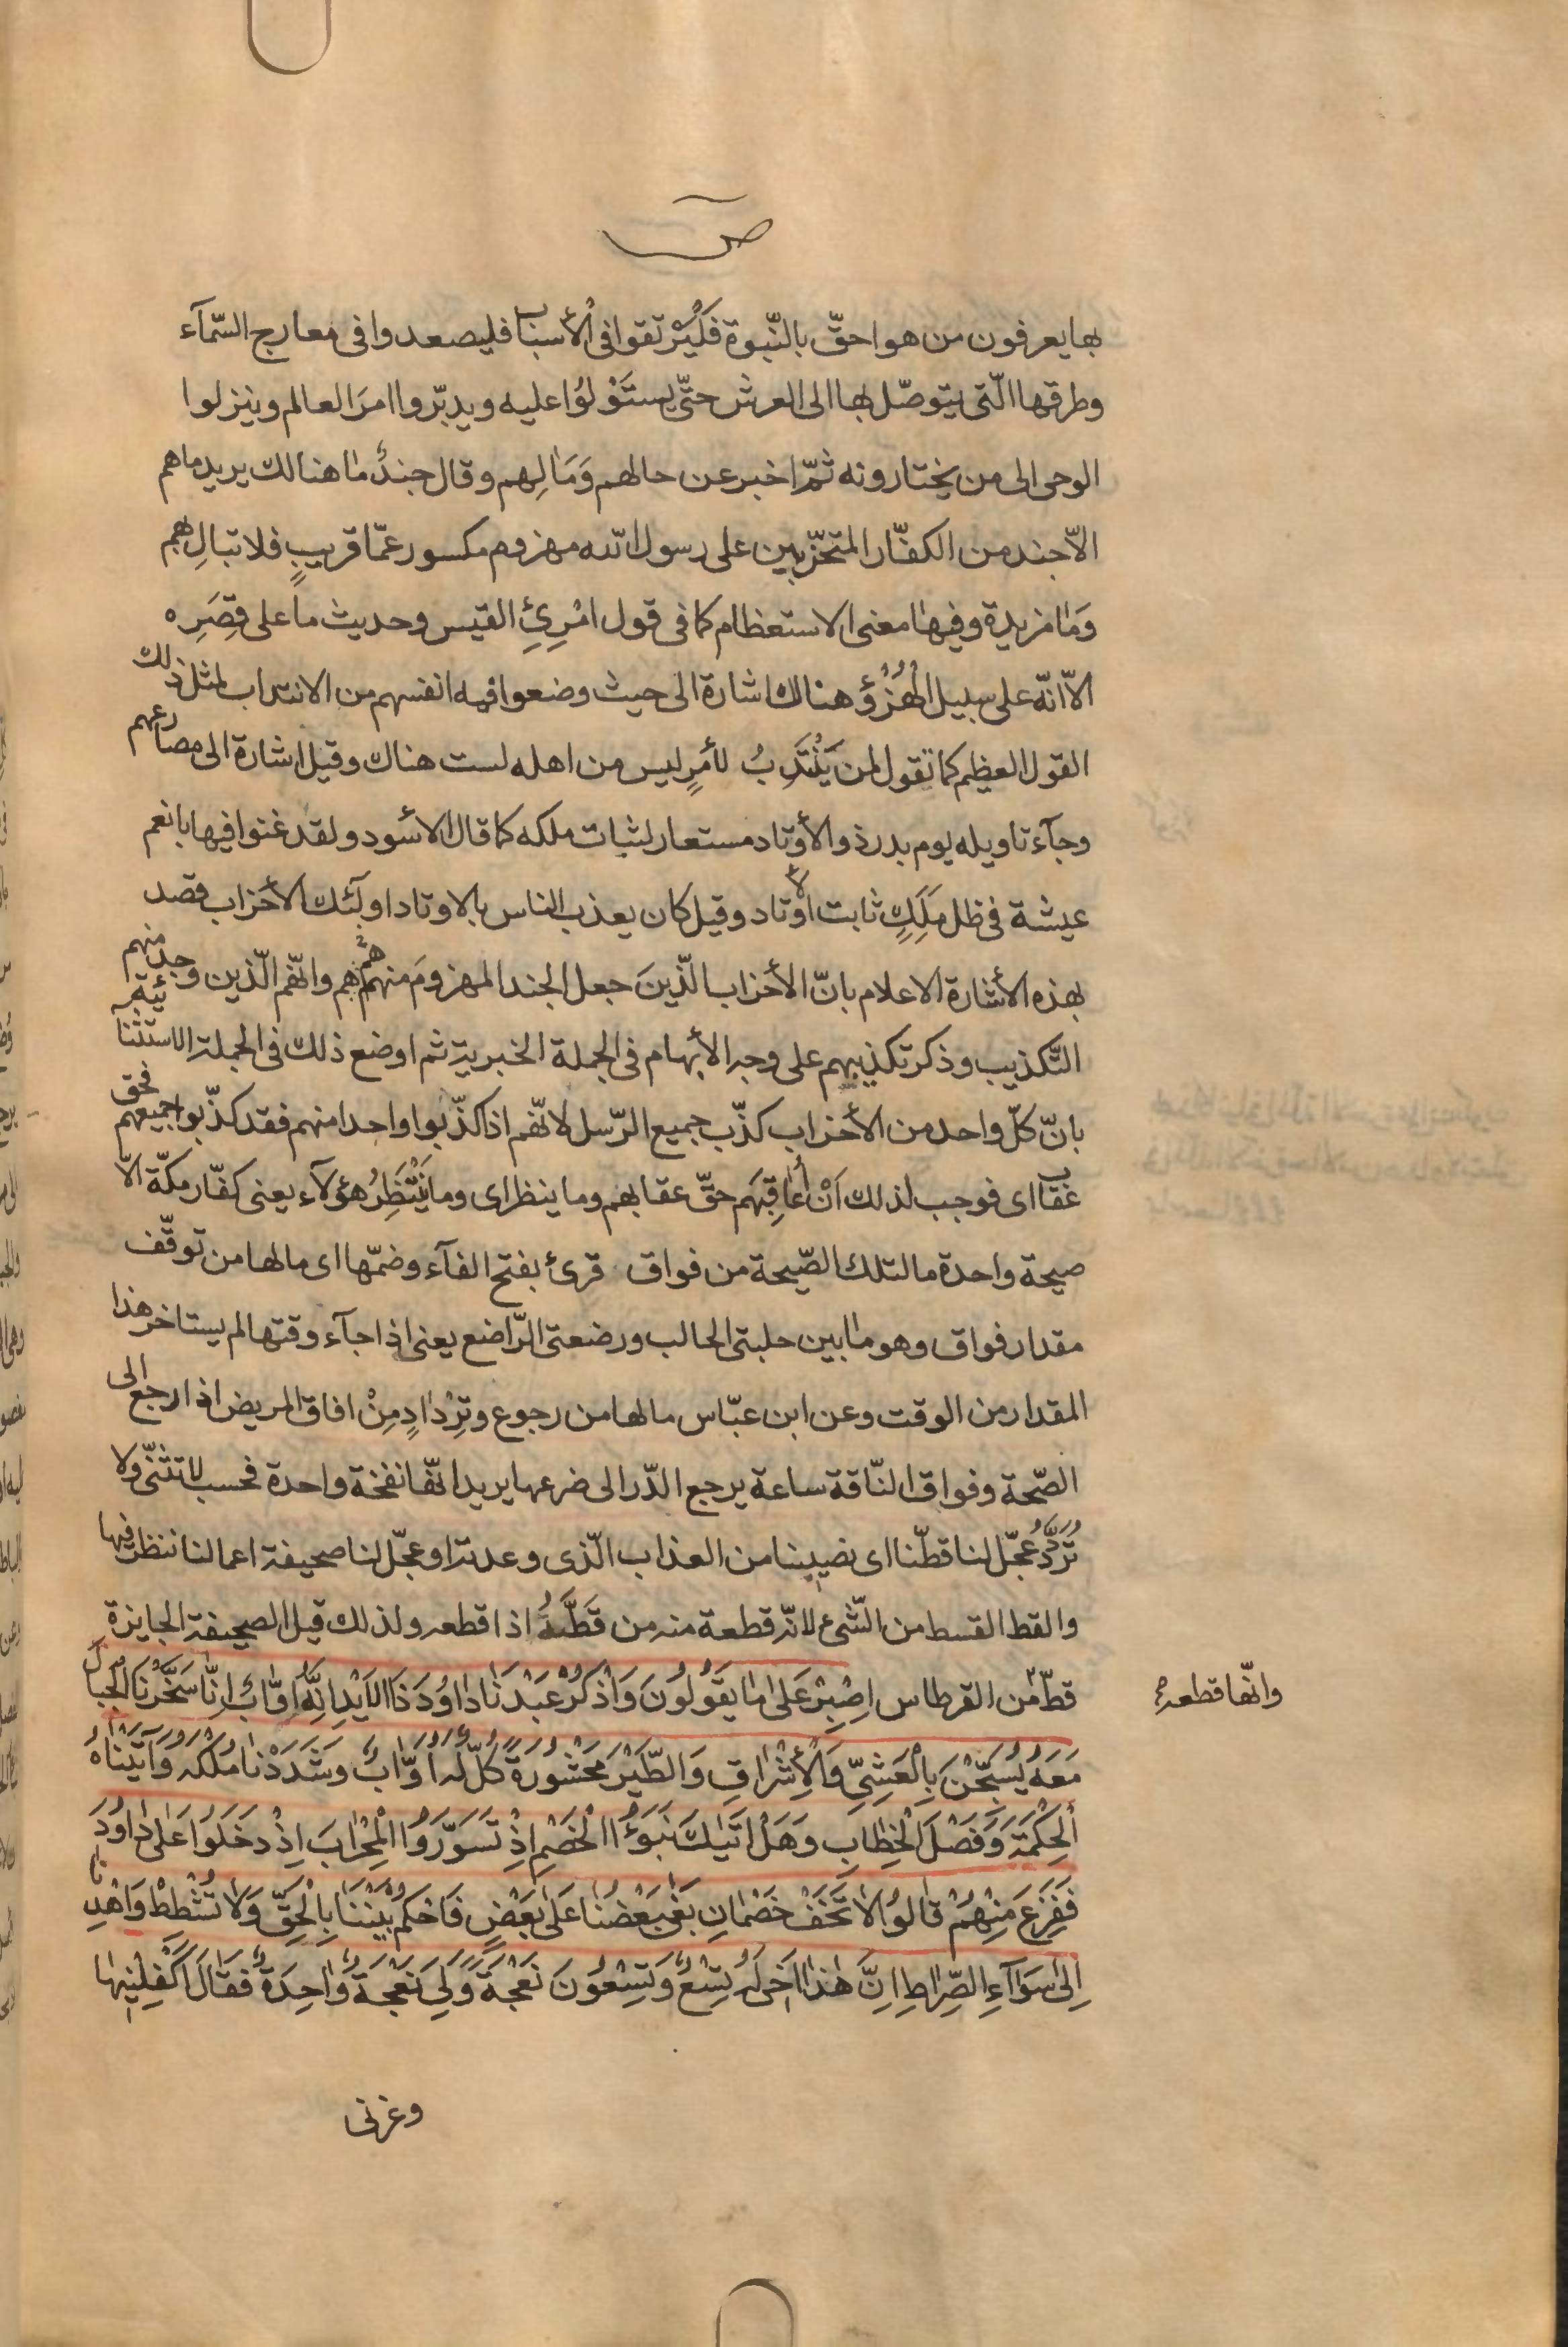 ص
بها يعرفون من هو احقّ بالنّبوة فَلْيَرْتقوا فى الْأسباب فليصعدوا فى معارج السّمآء
وطرقها الّتى يتوصّل بها الى العرش حتّى يستَوْلُوُا عليه ويدبّروا امرَ العالم وينزلوا
الوحى الى من يختارونه ثمّ اخبر عن حالهم وَمَالِهم وقال جندٌ ما هنالك يريد ما هم
الاّ جند من الكفّار المتحزّبين على رسول الله مهزوم مكسور عمّا قريبٍ فلا تبالِ بهم
وَمَا مزيدة وفيها معنى الاستعظام كما فى قول امْرِئِ القيس وحديث ما على قِصَرِه
الاّ انّه على سبيل الهُزُؤ وهنالك اشارة الى حيث وضعوا فيه انفسهم من الانتداب لمثل ذلك
القول العظيم كما تقول لمن يَنْتَدِبُ لأمرٍ ليس من اهله لست هناك وقيل اشارة الى مصارعهم
وجآء تاويله يوم بدر ذو الأوتاد مستعار لثبات ملكه كما قال الأسود ولقد غنوا فيها بانعم
عيشة فى ظل مَلِكٍ ثابت الأوتاد وقيل كان يعذب الناس بالاوتاد اولٓئك الأحزاب قصد
بهذه الأشارة الاعلام بانّ الأحزاب الّذينَ جعل الجند المهزومَ منهم هُمْ هم وانّهم الّذين وجد منهم
التّكذيب وذكر تكذيبهم على وجه الأبهام فى الجملة الخبرية ثم اوضع ذلك فى الجملة الاستثنائية
بانّ كلّ واحد من الأحزاب كذّب جميع الرّسل لانّهم اذا كذّبوا واحدا منهم فقد كذّبوا جميعهم فحق
عقاب اى فوجب لذلك اَنْ اُعاقِبَهم حقّ عقابهم وما ينظر اى وما يَنْتَظِرُ هؤلآء يعنى كفّار مكّة الاّ
صيحة واحدة ما لتلك الصّيحة من فواق قرئ بفتح الفآء وضمّها اى ما لها من توقّف
مقدار فواق وهو ما بين حلبتى الحالب ورضعتى الرّاضع يعنى اذا جآء وقتها لم يستاخر هذا
المقدار من الوقت وعن ابن عبّاس ما لها من رجوع وتِرْدادٍ مِنْ افاق المريض اذا رجع الى
الصّحة وفواق النّاقة ساعة يرجع الدّر الى ضرعها يريد انّها نفخة واحدة فحسب لا تثنّى ولا
تُرَدَّدُ عجّل لنا قطّنا اى نصيبنا من العذاب الّذى وعدته او عجّل لنا صحيفة اعمالنا ننظر فيها
والقط القسط من الشّىء لانّه قطعة منه من قَطَّهُ اذا قطعه ولذلك قيل الصحيفة الجايزة
قطّ من القرطاس اِصْبِرْ عَلىٰ ما يَقُولُونَ وَاذْكُرْ عَبْدَنا داوُدَ ذَا الاَيْدِ اِنَّهُ اَوّابٌ اِنّا سَخَّرْنَا الْجِبالَ
مَعَهُ يُسَبِّحْنَ بِالْعَشِيِّ وَالْأِشْراقِ وَالطَّيْرَ مَحْشُورَةً كُلٌّ لَهُ اَوّابٌ وَشَدَدْنا مُلْكَهُ وَآتَيْناهُ
الْحِكْمَةَ وَفَصْلَ الْخِطابِ وَهَلْ اَتيٰكَ نَبَؤُا الْخَصْمِ اِذْ تَسَوَّرُوا الْمِحْرابَ اِذْ دَخَلُوا عَلىٰ داوُدَ
فَفَزِعَ مِنْهُمْ قالُوا لا تَخَفْ خَصْمانِ بَغىٰ بَعْضُنا عَلىٰ بَعْضٍ فَاحْكُمْ بَيْنَنا بِالْحَقِّ وَلا تُشْطِطْ وَاهْدِنا
اِلىٰ سَوٓاءِ الصِّراطِ اِنَّ هٰذا اَخى لَهُ تِسْعٌ وَتِسْعُونَ نَعْجَةً وَلِىَ نَعْجَةٌ واحِدَةٌ فَقالَ اَكْفِلْنيها
وانّها قطعة
وعزنى